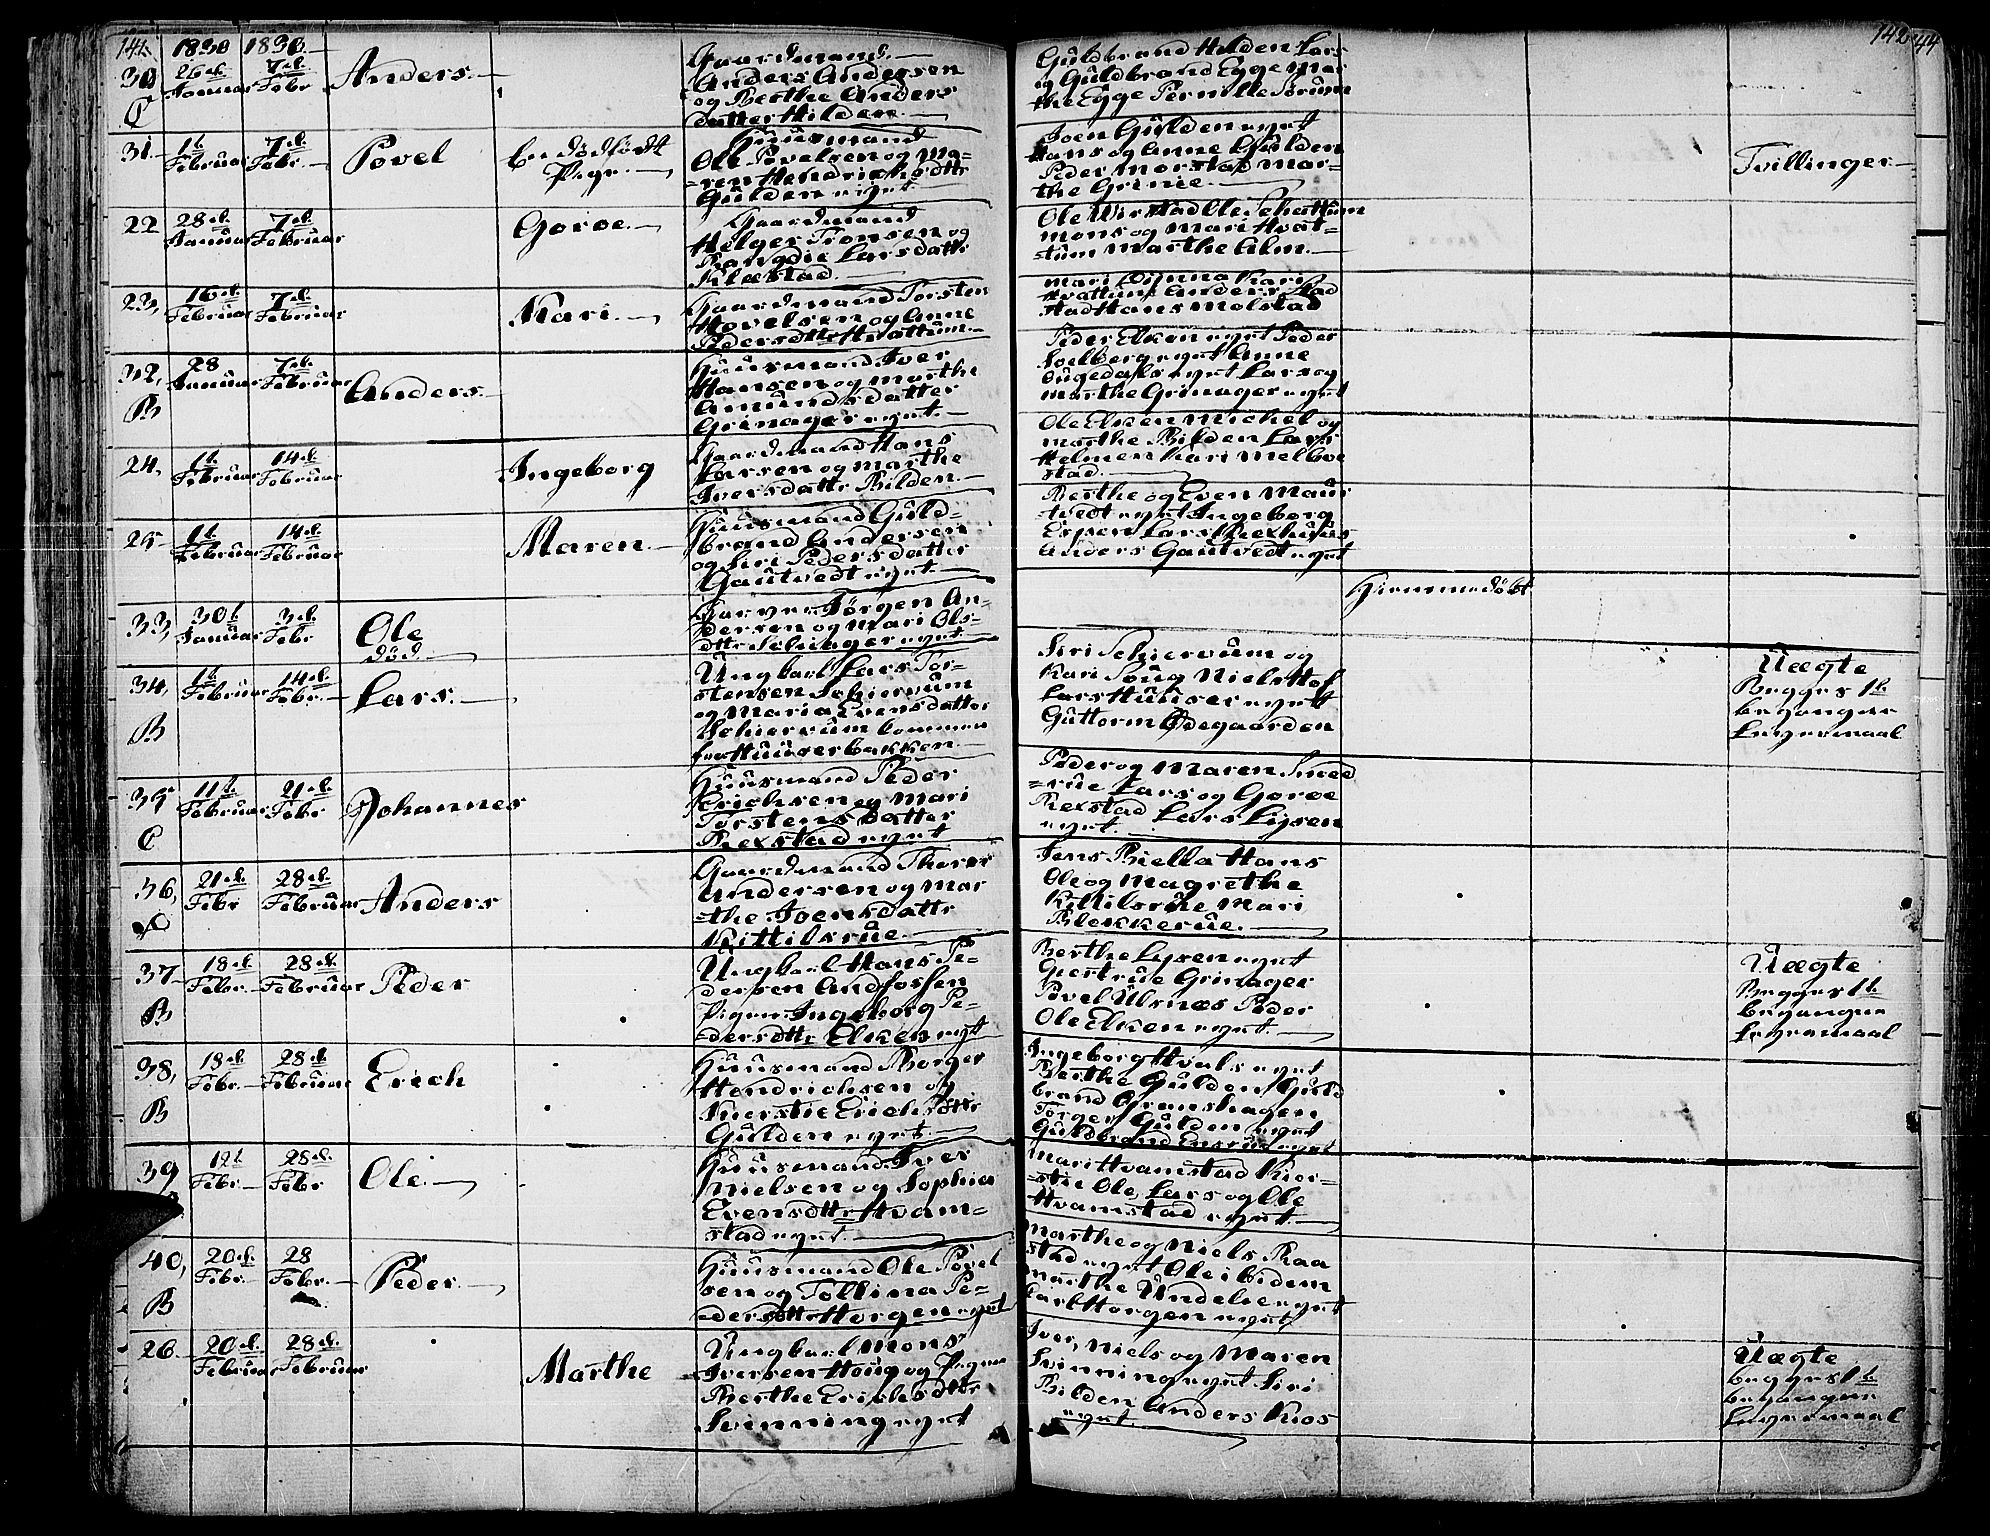 141. 1830 1830
30 26d. Januar 7d. Febr. Anders.
C
Gaardmand
Anders Andersen
og Berthe Anders
datter Hilden.
Guldbrand Hilden Lars
og Guldbrand Egge Mar
the Egge Pernille Sørum
142 44
31. 1t. Februar 7d. Febr. Povel
en dödfödt
Pige.
Huusmand
Ole Povelsen og Ma-
ren Hendrichsdttr
Gulden eiget
Joen Gulden eiget
Hans og Anne Gulden
Peder Morstad Mar-
the Grinie.
Tvillinger
22 28d. Januar 7d. Februar Goroe.
Gaardmand
Helger Tronsen og
Rangdie Larsdattr
Klæstad.
Ole Wirstad Ole Schattum
Mons og Mari Hvat-
tum Marthe Alm.
23, 16d. Februar 7d. Februar Mari.
Gaardmand Torsten
Hovelsen og Anne
Pedersdttr Hvattum.
Mari Kari
Hvattum Anders
stad Hans Molstad
32, 28 Januar 7d. Februar Anders.
B
Huusmand Iver
Hansen og Marthe
Amundsdatter
Grinager eiget.
Peder Elken eiget Peder
Soelberg eiget Anne
Lars og
Marthe Grinager eiget
24, 1t. Februar 14d. Februar Ingeborg
Gaardmand Hans
Larsen og Marthe
Iversdattr Bilden.
Ole Elken Michel og
Marthe Bilden Lars
Helmen Kari Melboe
stad.
25 1t. Februar 14d. Februar Maren.
Huusmand Guld-
brand Andersen
og Siri Pedersdatter
Gautvedt eiget.
Berthe og Even Maur
tvedt eiget Ingeborg
Lars
Anders Gautvedt eiget
33, 30t. Januar 3d. Febr Ole
död.
Jørgen An-
dersen og Mari Ols-
dttr eiget
Hiemmedöbt
34, 1t. Februar 14d. Febr. Lars.
B
Ungkarl Lars Tor-
stensen Schiervum
og Maria Evensdatter
Schiervum kommen
fra Huuserbakken.
Siri Schiervum og
Kari Niels Hof
Lars Huuser eiget
Guttorm Ødegaarden
Uægte
Begges 1t.
begangne
Leyermaal
35 11t. Februar 21d. Febr Johannes
C
Huusmand Peder
Erichsen og Mari
Torstensdatter
Rexstad eiget
Peder og Maren Smed
rue Lars og Goroe
Rexstad Lars Lysen
eiget.
36, 21d. Febr 28d. Februar Anders
Gaardmand Thor
Andersen og Mar
the Joensdattr
Kittilsrue.
Jens Biella Hans
Ole og Magrethe
Kittilsrue Mari
Blekkerue.
37 18d. Febr. 28d. Februar Peder
B
Ungkarl Hans Pe-
dersen Andfossen
Pigen Ingeborg Pe-
dersdttr Elken eiget
Berthe Lysen eiget
Giertrue Grinager
Povel Ulsnæs Peder
Ole Elken eiget.
Uægte
Begges 1t.
begangne
Leyermaal
38, 18d. Febr. 28d. Februar Erich
B
Huusmand Borger
Hendrichsen og
Kierstie Erichsdttr
Gulden eiget
Ingeborg Hvals eiget
Berthe Gulden Guld
brand Granshagen
Torger Gulden eiget
Guldbrand eiget
39 12t Febr. 28d. Febr Ole.
Huusmand Iver
Nielsen og Sophia
Evensdttr Hvam-
stad eiget.
Mari Hvamstad Kier-
stie Ole, Lars og Ole
Hvamstad eiget.
40, 20d. Febr. 28 Febr. Peder.
B
Huusmand Ole Povel
sen og Tollina Pe-
dersdttr Horgen eiget
Marthe og Niels Raa
stad eiget Ole ibidem
Marthe Undelie eiget
Karl Horgen eiget
26. 20d. Februar 28d. Februar Marthe
Ungkarl Mons
Iversen Houg og Pigen
Berthe Erichsdttr
Svinning eiget
Iver, Niels og Maren
Svinning eiget Siri
Bilden Anders Kios
eiget.
Uægte
begges 1t.
begangne
Leyermaal